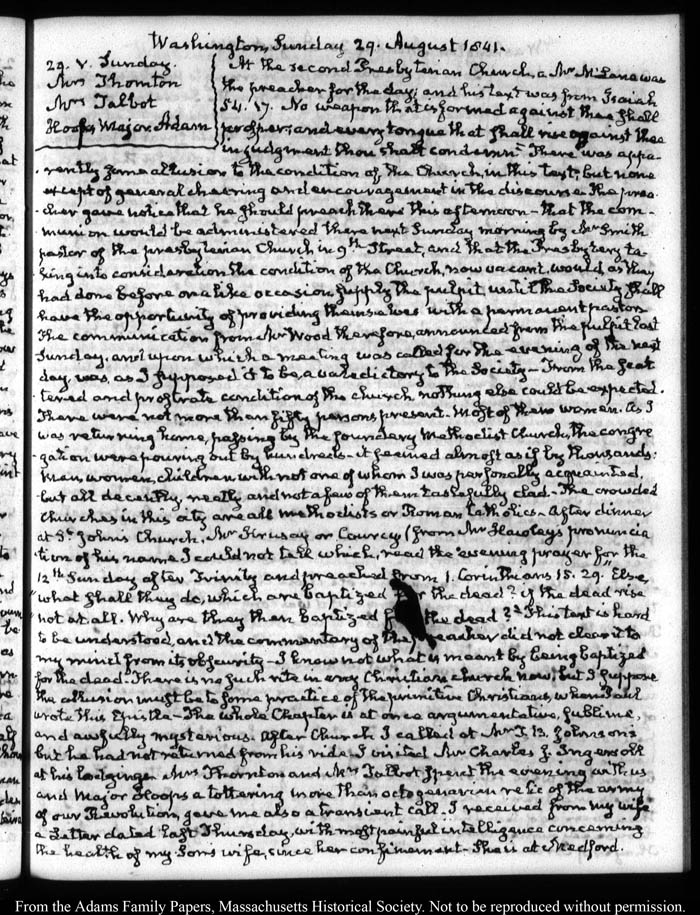 Washington, Sunday 29. August 1841.
29. V. Sunday.
Mrs Thornton
Mrs Talbot
Hoops Major. Adam
At the second Presbyterian Church, a Mr McLane was
the preacher for the day; and his text was from Isaiah
54. 17. No weapon that is formed against thee shall
prosper; and every tongue that shall rise against thee
in judgment thou shalt condemn. There was appa-
rently some allusion to the condition of the Church, in this text; but none
except of general cheering and encouragement in the discourse. The prea-
cher gave notice that he should preach there this afternoon - that the com-
munion would be administered there next Sunday morning by Mr Smith
pastor of the presbyterian Church, in 9th Street, and that the Presbytery ta-
king into consideration the condition of the Church, now vacant, would, as they
had done before on a like occasion supply the pulpit, until the Society shall
have the opportunity of providing themselves with a permanent pastor.
The communication from Mr Wood therefore, announced from the pulpit last
Sunday, and upon which a meeting was called for the evening of the next
day, was, as I supposed it to be a valedictory to the Society - From the scat-
tered and prostrate condition of the church nothing else could be expected.
There were not more than fifty persons present. Most of them women. As I
was returning home, passing by the foundery Methodist Church, the congre-
gation were pouring out by hundreds - it seemed almost as if by thousands:
men, women, children, with not one of whom I was personally acquainted,
but all decently, neatly, and not a few of them tastefully clad - The crowded
Churches in this city are all methodists or Roman Catholics - After dinner
at St. John's Church, Mr or Courcy (from Mr Hawley's pronuncia-
tion of his name I could not tell which, read the evening prayer for the
12th Sunday after Trinity and preached from 1. Corinthians 15. 29. "Else,
"what shall they do, which are baptized for the dead? if the dead rise
"not at all. Why are they then baptized for the dead?" This text is hard
to be understood, and the commentary of the preacher did not clear it to
my mind from its obscurity - I know not what is meant by being baptized
for the dead. There is no such rite in any Christian church now; but I suppose
the allusion must be to some practice of the primitive Christians, when Paul
wrote this Epistle - The whole Chapter is at once argumentative, sublime,
and awfully mysterious. After Church I called at Mr T. B. Johnson's
but he had not returned from his ride. I visited Mr Charles J. Ingersoll
at his lodgings. Mrs Thornton and Mrs Talbot spent the evening with us
and Major Hoops a tottering more than octogenarian relic of the army
of our Revolution, gave me also a transient call. I received from my wife
a Letter dated last Thursday, with most painful intelligence concerning
the health of my Son's wife, since her confinement - She is at Medford.
From the Adams Family Papers, Massachusetts Historical Society. Not to be reproduced without permission.